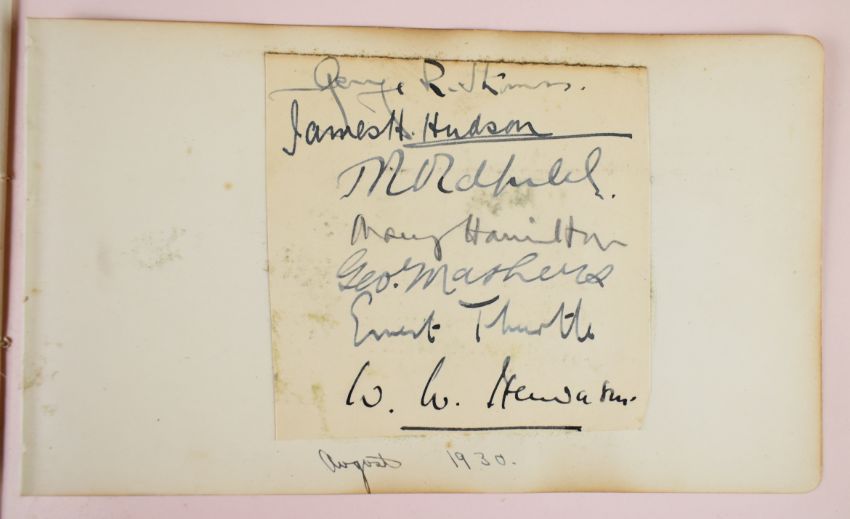 George R. Strauss.
James H. Hudson
J R Oldfield.
Mary Hamilton
Geo. Mathers
Ernest Thurtle
W. W. Henderson.
August 1930.